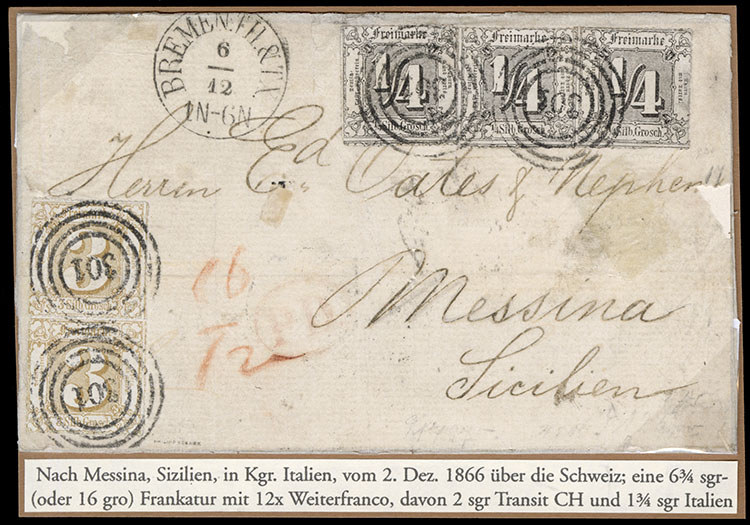 BREMEN.TH.&TX
6
12
1N-6N
Freimarke Freimarke Freimarke
1/4 1/4 1/4
301
¼Silb.Grosch. ¼Silb.Grosch. ¼Silb.Grosch.
Herren Ed Oates & Nephew
301
3
Silb.Grosch.
Messina
Sicilien
3
301
Silb.Grosch.
Nach Messina, Sizilien, in Kgr. Italien, vom 2. Dez. 1866 über die Schweiz; eine 6¾ sgr-
(oder 16 gro) Frankatur mit 12x Weiterfranco, davon 2 sgr Transit CH und 1¾ sgr Italien